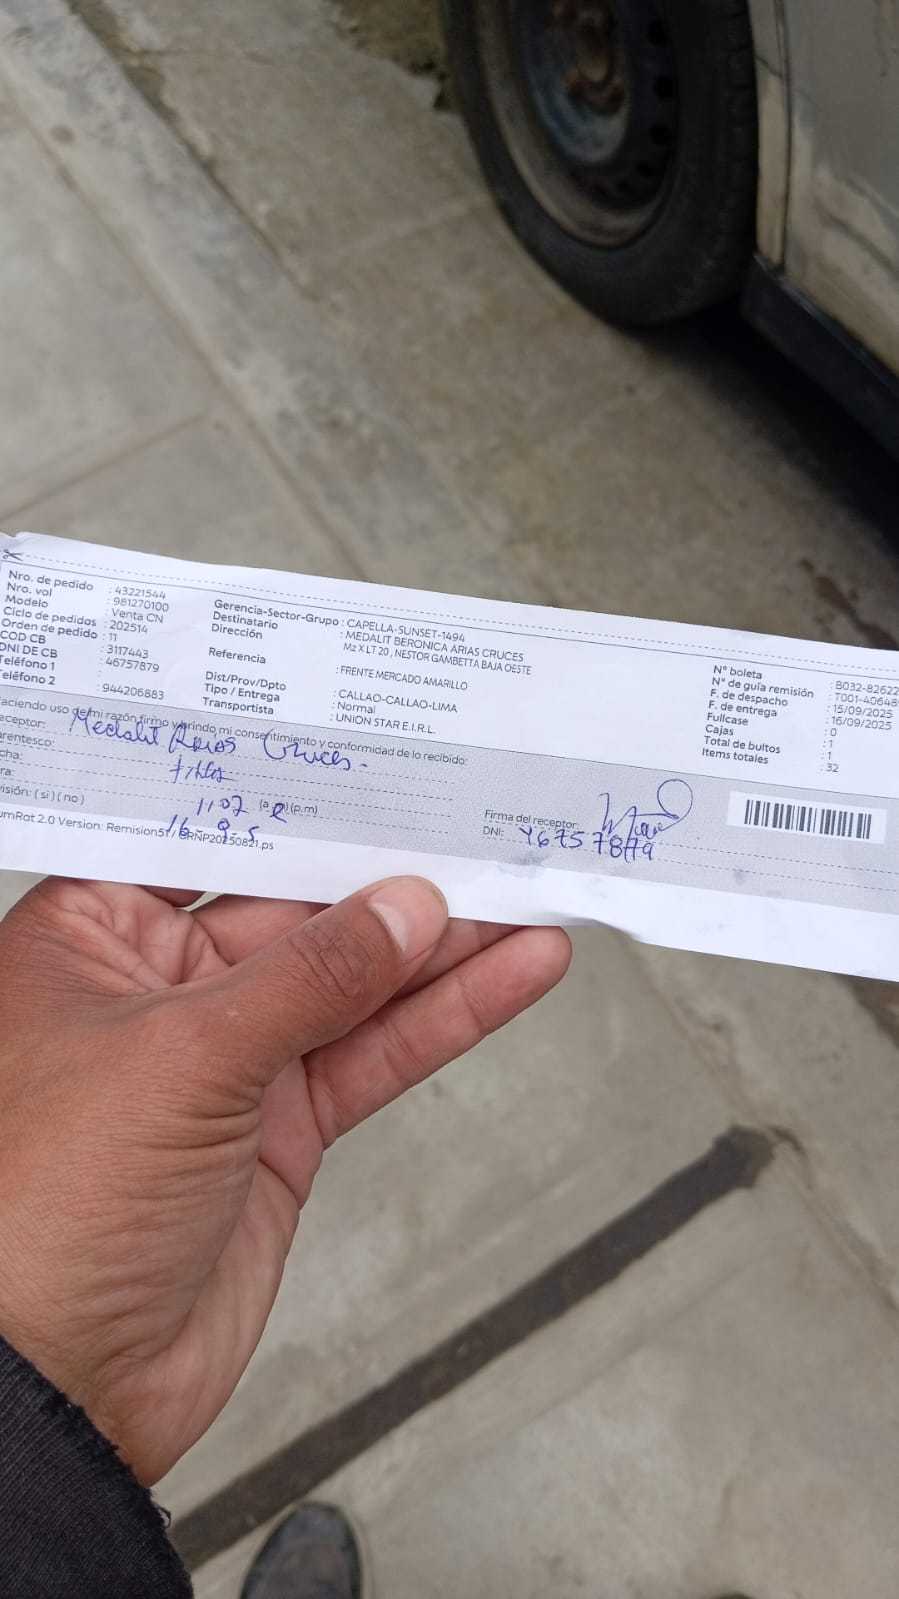 Nro. de pedido : 43221544
Nro. vol : 981270100
Modelo : Venta CN
Ciclo de pedidos : 202514
Orden de pedido : 11
COD CB : 3117443
DNI DE CB : 46757879
Teléfono 1 :
Teléfono 2 : 944206883
Gerencia-Sector-Grupo : CAPELLA-SUNSET-1494
Destinatario : MEDALIT BERONICA ARIAS CRUCES
Dirección : Mz X LT 20 , NESTOR GAMBETTA BAJA OESTE
Referencia : FRENTE MERCADO AMARILLO
Dist/Prov/Dpto : CALLAO-CALLAO-LIMA
Tipo / Entrega : Normal
Transportista : UNION STAR E.I.R.L.
N° boleta : B032-82622
N° de guía remisión : T001-40648
F. de despacho : 15/09/2025
F. de entrega : 16/09/2025
Fullcase : 0
Cajas : 1
Total de bultos : 1
Items totales : 32
aciendo uso de mi razón firmo y brindo mi consentimiento y conformidad de lo recibido:
eceptor: Medalit Arias Cruces
arentesco:
cha:
ra: 1:07 (a.m) (p.m)
isión: ( si ) ( no ) 16-9-
umRot 2.0 Version: Remision51/ .ps
Firma del receptor:
DNI: 46757879